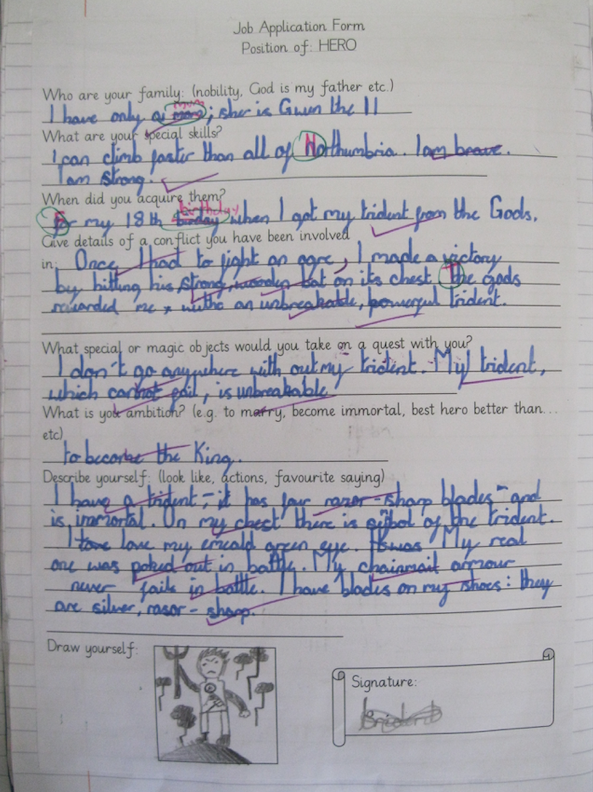 Job Application Form
Position of: HERO
Who are your family: (nobility, God is my father etc.)
mum
I have only a; she is Gwen the II
What are your special skills?
I can climb faster than all of Northumbria. I am brave.
I am strong.
When did you acquire them?
birthday
For my 18th birday when I got my trident from the Gods.
Give details of a conflict you have been involved
in: Once I had to fight an ogre, I made a victory
by hitting his strong, wooden bat on its chest the gods
rewarded me, with a an unbreakable, powerful trident.
What special or magic objects would you take on a quest with you?
I don't go anywhere with out my trident. My trident,
which cannot fail, is unbreakable
What is your ambition? (e.g. to marry, become immortal, best hero better than...
etc)
to become the King.
Describe yourself: (look like, actions, favourite saying)
I have a trident - it has four razor-sharp blades - and
is immortal. On my chest there is of the trident.
I love my emerald green eye. My real
one was poked out in battle. My chainmail armour
never fails in battle. I have blades on my shoes: they
are silver, rasor-sharp.
Draw yourself:
Signature: